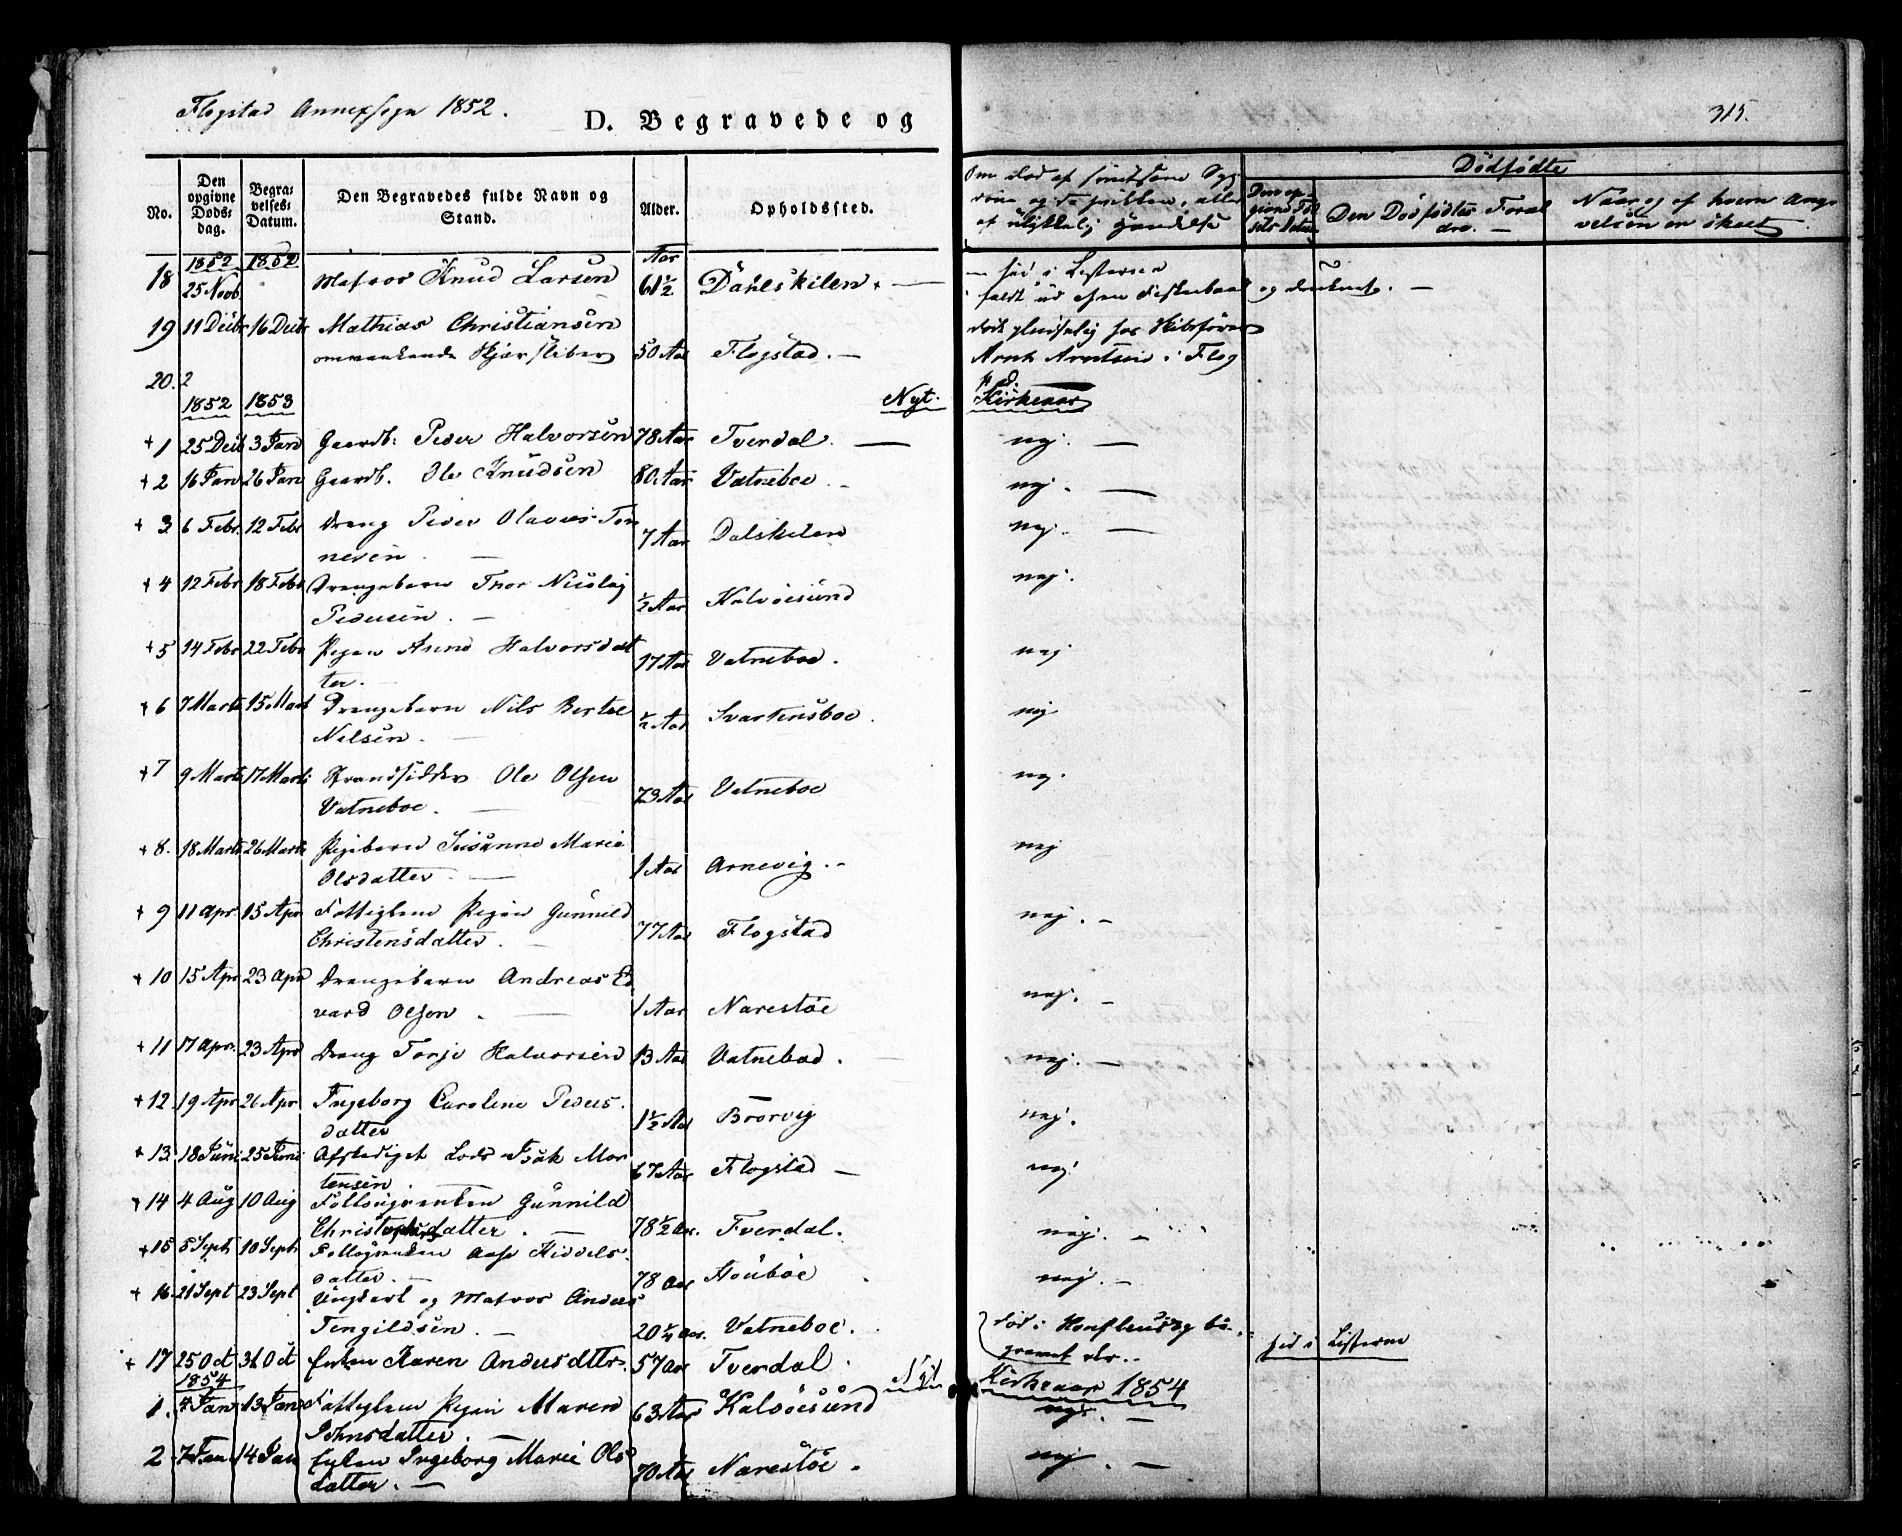 Flogstad Annexsogn 1852.
D. Begravede og
315.
No.
Den opgivne Døds-dag.
Begra-velses-Datum.
Den Begravedes fulde Navn og Stand.
Alder.
Opholdssted.
Om død af smitsom Syg-
af ulykkelig Hændelse
Dødfødte
Den Dødfødtes Foræl
dre. —
Naar og af hvem Ang
velsen er skeet
1852 1852 Aar
18 25 Novb. Matros Knud Larsen 61½ Dahlskilen. — see i Listerne
faldt ud af en Fiskerbaad og druknet. —
19 11 Decbr 16 Decbr Mathias Christiansen død pludselig hos Skibsfører
omvankende 50 Aar Flogstad. — Arnt Arntsen i Flog
20.
1852 1853 Nyt. Kirkeaar
+ 1 25 Decb 3 Jan Gaardb: Peder Halvorsen 78 Aar Tverdal. — nej. —
+ 2 16 Jan 26 Jan Gaardb. Ole Knudsen 80 Aar Vatneboe. nej. —
+ 3 6 Febr. 12 Febr Dreng Peder Olaves Ton
nesen. — 7 Aar Dalskilen nej. —
+ 4 12 Febr 18 Febr Drengebarn Thor Nicolaj
Pedersen. — ½ Aar Kalvøesund nej.
+ 5 14 Febr 22 Febr Pigen Anne Halvorsdat
ter. — 17 Aar Vatneboe. nej
+ 6 7 Marts 15 Mart Drengebarn Nils Bertel
Nilsen. — ½ Aar Svartensboe. nej
+ 7 9 Marts 17 Marts Strandsidder Ole Olsen
Vatneboe. — 73 Aar Vatneboe nej.
+ 8. 18 Marts 26 Marts Pigebarn Susanne Marie
Olsdatter. — 1 Aar Arnevig. — nej
+ 9 11 Apr. 15 Apr Fattiglem Pigen Gunnild
Christensdatter. — 77 Aar Flogstad nej. —
+ 10 15 Apr 23 Apr Drengebarn Andreas Ed
vard Olsen. — 1 Aar Narestøe nej. —
+ 11 17 Apr. 23 Apr Dreng Torje Halvorsen 13 Aar Vatneboe. nej. —
+ 12 19 Apr 26 Apr Ingeborg Caroline Peders.
datter 1½ Aar Brorvig nej.
+ 13 18 Juni 25 Juni Afskediget Lods Isak Mor
tensen. — 67 Aar Flogstad — nej
+ 14 4 Aug 10 Aug Gunnild
Christophersdatter. — 78½ Aar. Tverdal. nej. —
+ 15 5 Sept 10 Sept Aase Kiddels.
datter. — 78 Aar nej. —
+ 16 21 Sept 23 Sept Ungkarl og Matros Anders
Tengildsen. — 20 ¼ Aar. Vatneboe. død i Honfleur og be-
gravet der. — see i Listerne
+ 17 25 Oct 31 Oct Enken Karen Andersdttr. 57 Aar Tverdal.
1854 Nyt Kirkeaar 1854
1. 4 Jan 13 Jan Fattiglem Pigen Maren
Johnsdatter. — 63 Aar Kalvøesund nej. —
2 7 Jan 14 Jan Enken Ingeborg Marie Ols
datter. — 70 Aar Narestøe. nej. —